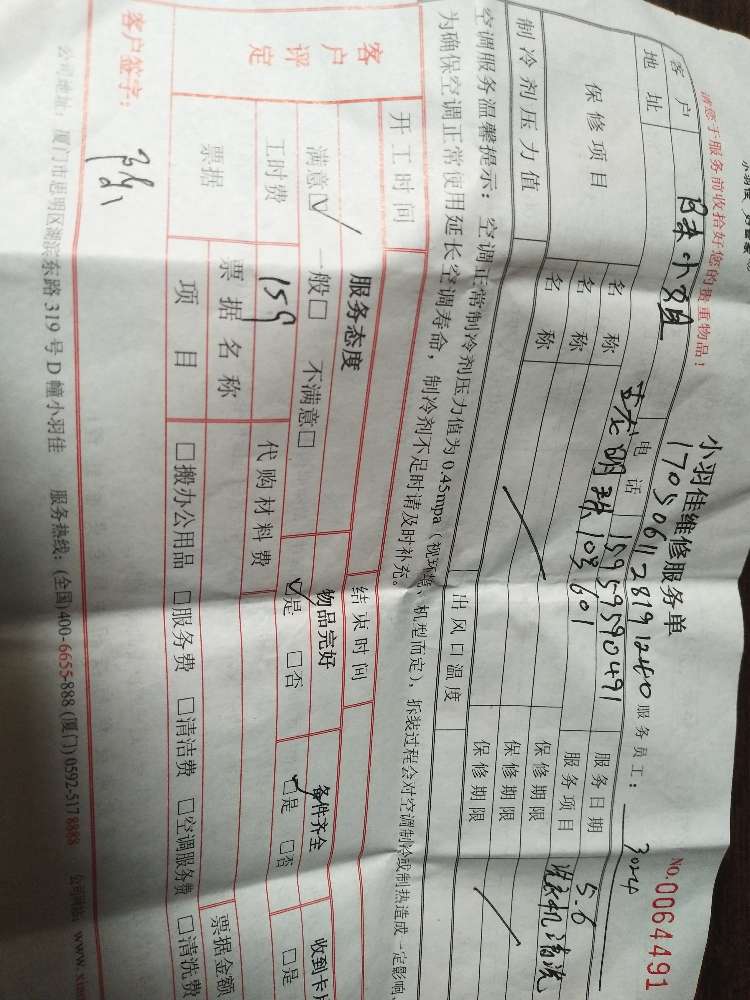 请您于服务前收拾好您的贵重物品！
小羽佳维修服务单
NO.0064491
1705061128191240 服务员工： 3024
客户 小姐 电话 15959590491 服务日期 5.6
地址 明珠10号601 服务项目 洗衣机清洗
保修项目 名称 保修期限
名称 保修期限
名称 保修期限
制冷剂压力值 出风口温度
空调服务温馨提示：空调正常制冷剂压力值为0.45mpa（视环境、机型而定），拆装过程会对空调制冷或制热造成一定影响，
为确保空调正常使用延长空调寿命，制冷剂不足时请及时补充。
开工时间 结束时间
客户评定 服务态度 物品完好 备件齐全 收到卡片
满意☑ 一般□ 不满意□ ☑是 □否 ☑是 □否 □是
工时费 159 代购材料费
票据 票据名称 票据金额
项目 □搬办公用品 □服务费 □清洁费 □空调服务费 □清洗费
客户签字：
公司地址：厦门市思明区湖滨东路319号D幢小羽佳 服务热线：(全国)400-6655-888 (厦门) 0592-5178888 公司网站：www.xia